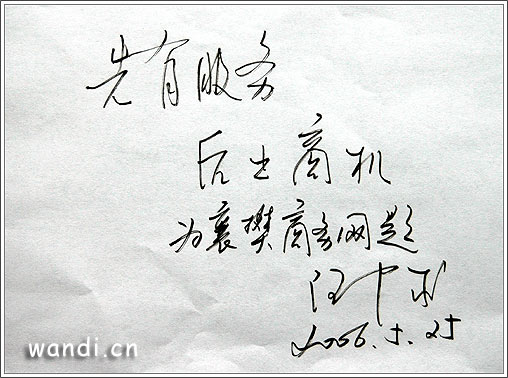 先有服务
后 商机
为襄樊商务网题
汪中求
2006.5.25
wandi.cn